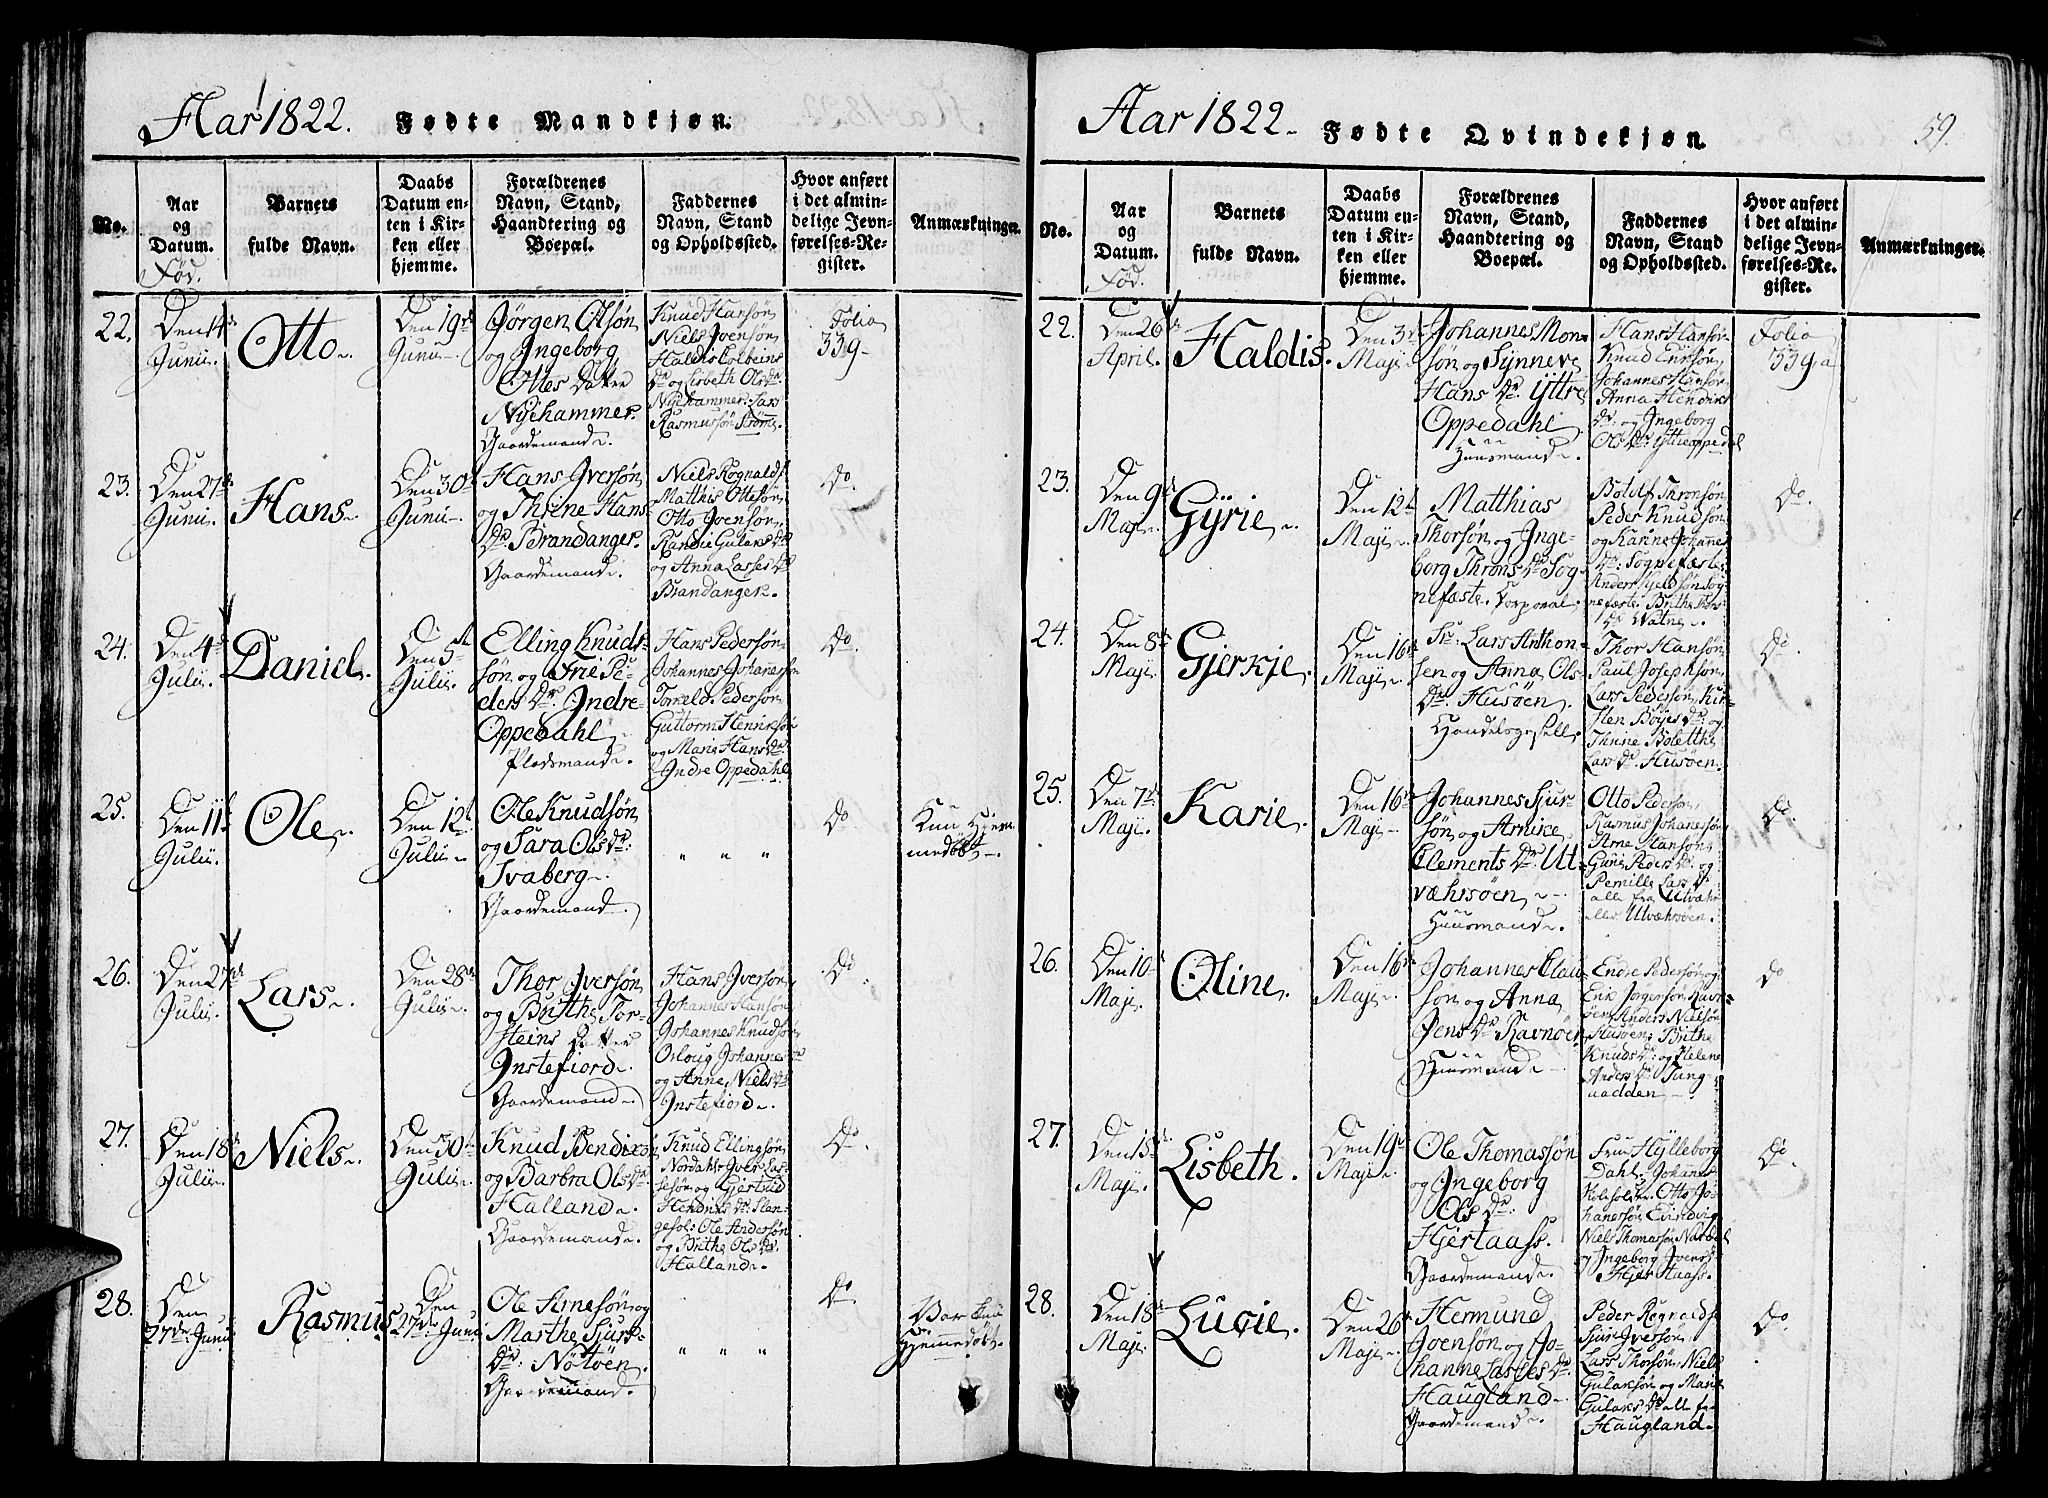 Aar 1822. Fødte Mandkjøn.
No.
Aar
og
Datum.
Fød.
Barnets
fulde Navn.
Daabs
Datum en-
ten i Kir-
ken eller
hjemme.
Forældrenes
Navn, Stand,
Haandtering og
Boepæl.
Faddernes
Navn, Stand
og Opholdssted.
Hvor anført
i det almin-
delige Jevn-
førelses-Re-
gister.
Anmærkninger.
22.
Den 14de
Junii.
Otto.
Den 19de
Junii.
Jørgen Olsøn
og Ingeborg
Ottes Datter
Nyehammer.
Gaardemand.
Knud Hansøn
Niels Joensøn
Haldis Colbeins
Dr. og Lisbeth Ols Dr.
Nyehammer. Lars
Rasmussøn Strømø
Folio
339
23.
Den 27de
Junii.
Hans.
Den 30te
Junii.
Hans Iversøn
og Thrine Hans
Dr. Brandanger.
Gaardemand.
Niels Rognalds.
Matthis Ottesøn
Otto Joensøn
Randie Gulaks Dr
og Anna Lasses Dr
Brandanger.
Do.
24.
Den 4de
Julii.
Daniel.
Den 5te
Julii.
Elling Knud-
søn og Frie Pe-
ders Dr. Indre-
Oppedahl
Pladsmand.
Hans Pedersøn
Johannes Johannessøn
Torreld Pedersøn
Guttorm Henriksøn
og Marie Hans Dr.
Indre Oppedahl
Do
25.
Den 11te
Julii.
Ole.
Den 12te
Julii.
Ole Knudsøn
og Sara Ols Dr:
Svaberg.
Gaardemand.
" " "
Do
Kun Hjem-
medøbt.
26.
Den 27de
Julii.
Lars.
Den 28de
Julii.
Thor Iversøn
og Brithe Tor-
steins Datter
Instefiord.
Gaardemand.
Hans Iversøn
Johannes Hansøn
Johannes Knudsøn
Orloug Johannes Dr
og Anne Niels Dr
Instefiord.
Do
27.
Den 18de
Julii.
Niels.
Den 30te
Julii.
Knud Bendixsøn
og Barbra Ols Dr.
Halland.
Gaardemand.
Knud Ellingsøn
Nordahl. Iver Las-
sesøn og Gjertrud
Hendriks Dr. Slen-
gesol: Ole Andersøn
og Brithe Ols Dr.
Halland.
Do.
28.
Den
27de Junii
Rasmus
Den
27de Junii
Ole Arnesøn og
Marthe Sjurs
Dr: Nötöen.
Gaardemand.
" " "
Do
Var kun
Hjemmedøbt.
Aar 1822. Fødte Qvindekjøn.
59.
No.
Aar
og
Datum.
Fød.
Barnets
fulde Navn.
Daabs
Datum en-
ten i Kir-
ken eller
hjemme.
Forældrenes
Navn, Stand,
Haandtering og
Boepæl.
Faddernes
Navn, Stand
og Opholdssted.
Hvor anført
i det almin-
delige Jevn-
førelses-Re-
gister.
Anmærkninger.
22.
Den 26de
April.
Haldis.
Den 3de
Maji
Johannes Mon-
søn og Synneve
Hans Dr. Yttre
Oppedahl.
Huusmand.
Hans Hansøn
Knud Erikson
Johannes Hansøn
Anna Hendriks
Dr. og Ingeborg
Ols Dr. Yttreoppedal
Folio
339a
23.
Den 9de
Maji.
Gÿrie.
Den 12te
Maji.
Matthias
Thorsøn og Inge-
borg Throns Dr. Sog-
nefæste. Corporal.
Botolf Thronsøn
Peder Knudsøn
og Karine Johannes
Dr: Sognefæste
Anders Kjeldsøn Sog-
nefæste. Brithe Thors
Dr Watne.
Do.
24.
Den 8de
Maji.
Gjerkje.
Den 16de
Maji.
Sr: Lars Anthon-
sen og Anna Ols
Dr. Husöen.
Handelsgesell.
Thor Hansøn
Paul Josephsøn
Lars Pedersøn Kir-
sten Böÿes Dr: og
Thrine Bolette
Lars Dr. Husöen.
Do.
25.
Den 7de
Maji.
Karie.
Den 16de
Maji.
Johannes Sjur-
søn og Arnike
Clements Dr. Ut-
væhrsöen.
Huusmand.
Otto Pedersøn
Rasmus Johanesøn
Arne Hansøn
Guri Peders Dr. og
Pernille Lars Dr
alle fra Utvæhr
eller Utvæhrsöen.
Do
26.
Den 10de
Maji.
Oline.
Den 16de
Maji.
Johannes Clau-
søn og Anna
Jens Dr Ravnöen
Huusmand.
Endre Pedersøn og
Erik Jørgensøn Ravn-
öen Anders Nielsøn
Husöen. Brithe
Knuds Dr: og Helene
Anders Dr. Tung-
oadden
Do
27.
Den 15de
Maji.
Lisbeth.
Den 19de
Maji.
Ole Thomassøn
og Ingeborg
Ols Dr:
Hjertaass.
Gaardemand.
Frue Hylleborg
Dahl. Johannes
Otto Jo-
hanesøn Eivindvig
Niels Thomassøn
og Ingeborg Joens
Hjertaass.
Do.
28.
Den 18de
Maji.
Lucie.
Den 26de
Maji.
Hermund
Joensøn og Jo-
hanne Lasses Dr.
Haugland
Gaardemand.
Peder Rognalds
Sjur Iversøn
Lars Thorsøn Niels
Gulaksøn og Marie
Gulaks Dr alle fra
Haugland
Do